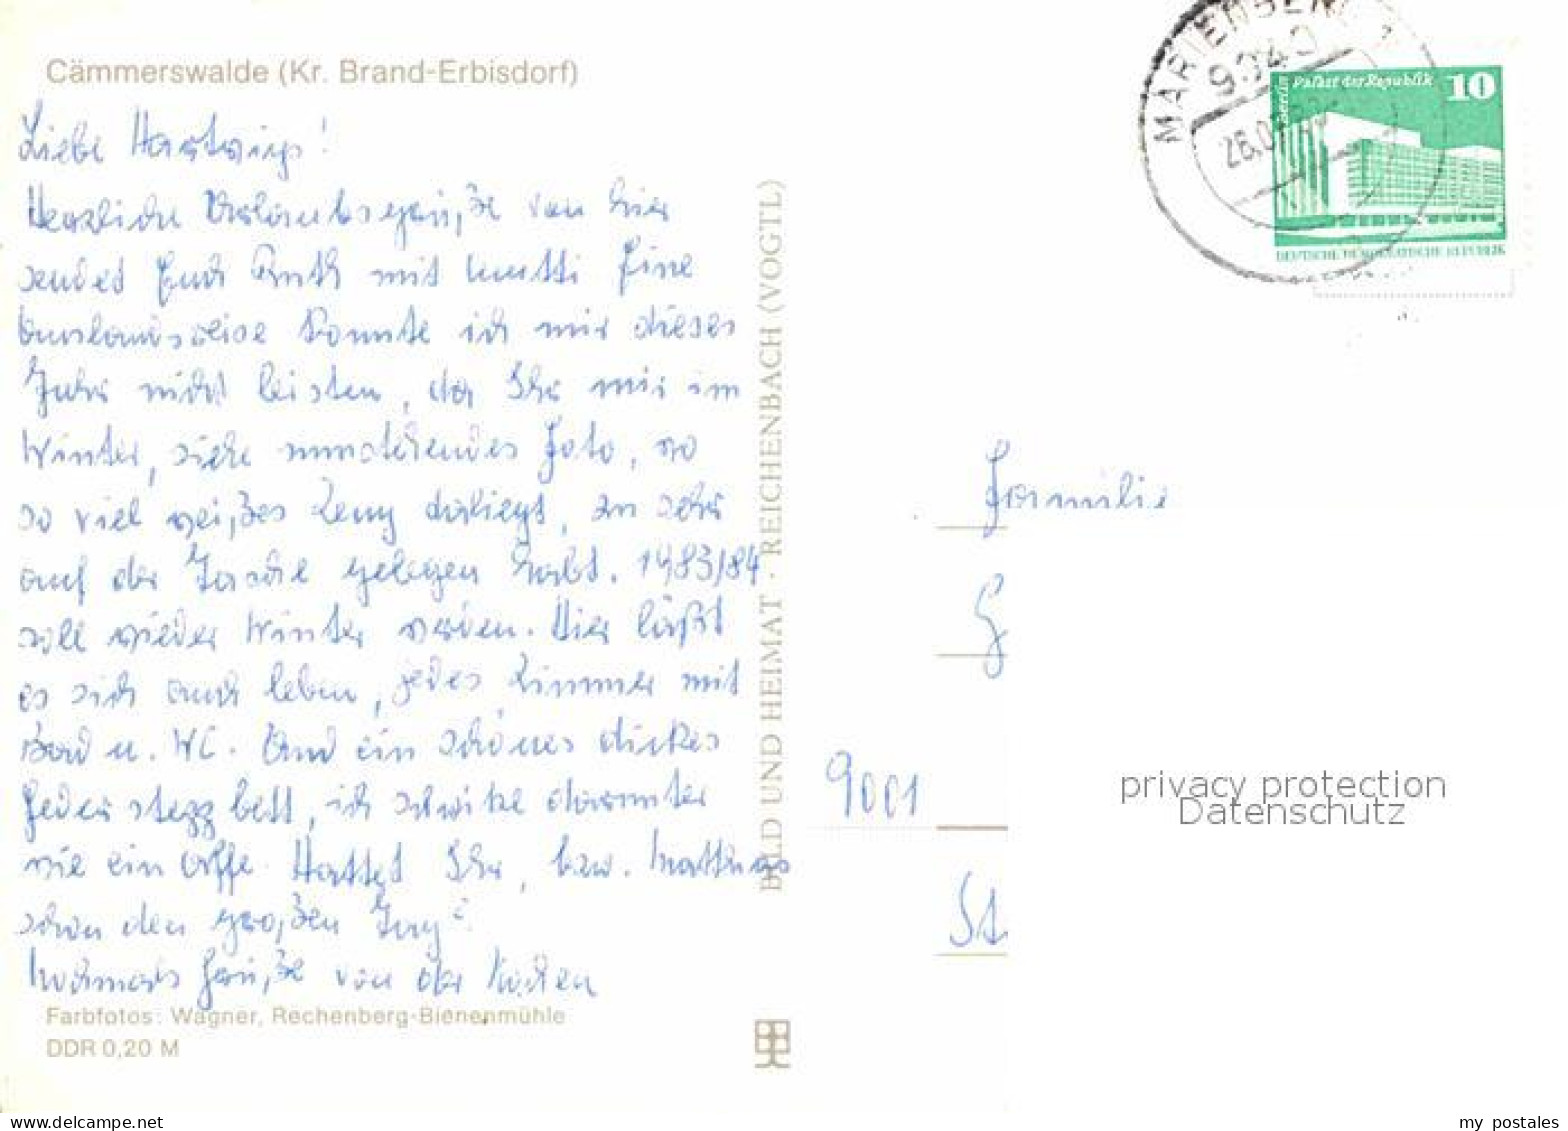 Cämmerswalde (Kr. Brand-Erbisdorf)
Liebe Hartwigs!
Herzliche Urlaubsgrüße von hier
sendet Euch Ruth mit Mutti Eine
Auslandsreise konnte ich mir dieses
Jahr nicht leisten, da Ihr mir im
Winter, siehe umstehendes Foto, wo
so viel weißes Zeug daliegt, zu sehr
auf der Tasche gelegen habt. 1983/84
soll wieder Winter werden. Hier läßt
es sich auch leben, jedes Zimmer mit
Bad u. WC. Und ein schönes dickes
Federbett, ich schwitze darunter
wie ein Affe. Hattet Ihr, bzw. Matthias
schon den großen Tag?
Nochmals Grüße von der
Farbfotos: Wagner, Rechenberg-Bienenmühle
DDR 0,20 M
BILD UND HEIMAT · REICHENBACH (VOGTL)
MARIENBERG 1
9340
26.07.83
Berlin Palast der Republik 10
DEUTSCHE DEMOKRATISCHE REPUBLIK
Familie
9001
privacy protection
Datenschutz
my postales